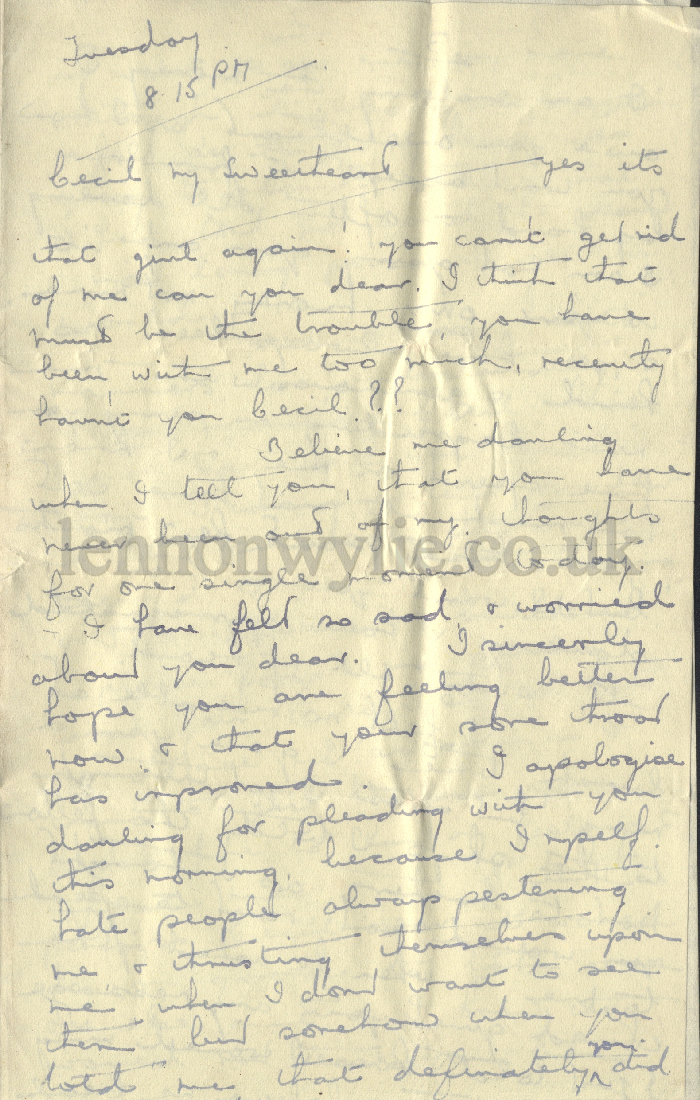 Tuesday
8.15 PM
Cecil my Sweetheart yes its
that girl again! you can't get rid
of me can you dear. I think that
must be the trouble, you have
been with me too much, recently
havn't you Cecil.??
Believe me darling
when I tell you, that you have
never been out of my thoughts
for one single moment today.
- I have felt so sad, & worried
about you dear. I sincerely
hope you are feeling better
now & that your sore throat
has improved. I apologise
darling for pleading with you
this morning, because I myself.
hate people always pestering
me & thrusting themselves upon
me when I don't want to see
them but somehow when you
told me that definately you did
lennonwylie.co.uk